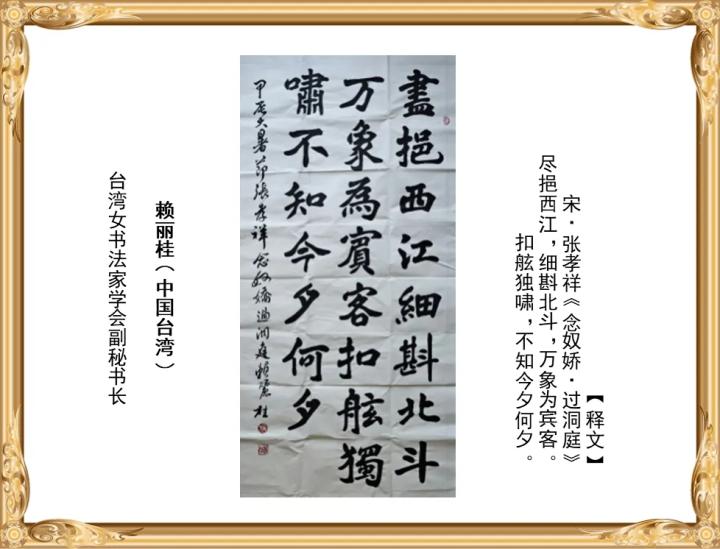 【释文】
宋·张孝祥《念奴娇·过洞庭》
尽挹西江，细斟北斗，万象为宾客。
扣舷独啸，不知今夕何夕。
盡挹西江細斟北斗
万象為賓客扣舷獨
嘯不知今夕何夕
甲辰大暑節張孝祥念奴嬌過洞庭賴麗桂
赖丽桂（中国台湾）
台湾女书法家学会副秘书长